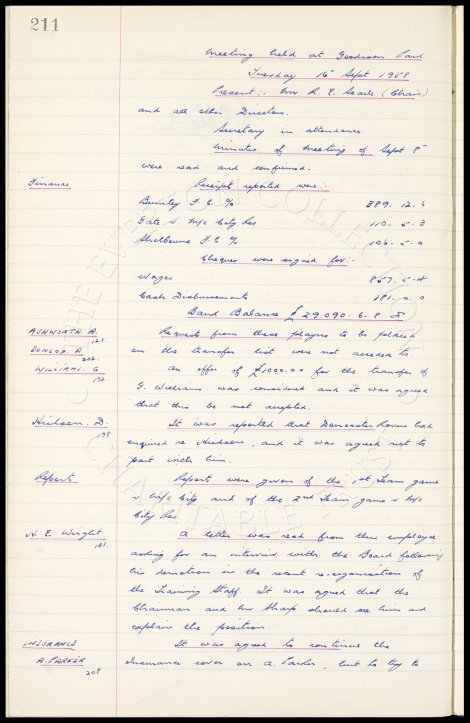 211
Meeting held at Goodison Park
Tuesday 16th Sept 1958
Present:- Mr R. E. Searle (Chair)
and all other Directors.
Secretary in attendance.
Minutes of Meeting of Sept 8th
were read and confirmed.
Finance
Receipts reported were:-
Burnley F.C. % 389. 12. 6
Gate v M/c City Res 110. 5. 3
F.C. % 106. 5. 0
Cheques were signed for:-
Wages 859. 5. 4
Cash Disbursements 181. 0. 0
Bank Balance £29,090. 6. 8
ASHWORTH. A. 121.
DUNLOP. A 202.
WILLIAMS. G 192
Requests from these players to be placed
on the transfer list were not acceded to.
An offer of £1000.0.0 for the transfer of
G. Williams was considered and it was agreed
that this be not accepted.
Hickson. D. 198
It was reported that Doncaster Rovers had
enquired re Hickson, and it was agreed not to
part with him.
Reports
Reports were given of the 1st Team game
v M/c City and of the 2nd Team game v M/c
City Res.
H. E. Wright 101.
A letter was read from this employee
asking for an interview with the Board following
his demotion in the recent re-organisation of
the Training Staff. It was agreed that the
Chairman and Mr Sharp should see him and
explain the position.
INSURANCE
A. PARKER 208
It was agreed to continue the
Insurance cover on A. Parker, but to try to
THE EVERTON COLLECTION
CHARITABLE TRUST